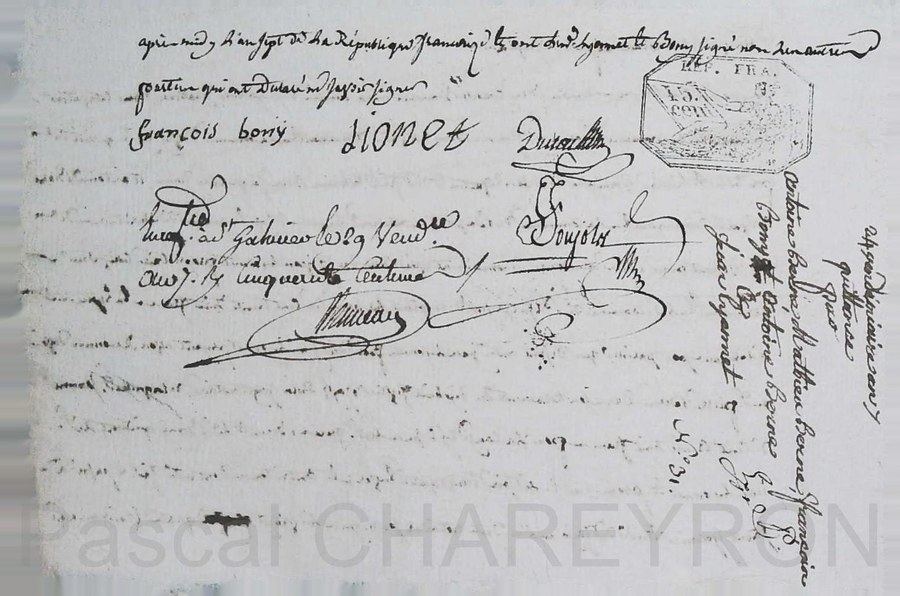 après midy l'an sept de la République française et ont led. lyonnet et Bony signé non les autres
parties qui ont déclaré ne savoir signer
françois bony
Lionet
Enreg.tré à St Galmier le 29 Vend.re
an 7. R cinquante Centime
REP. FRA.
24 vendémiaire an 7
quittance
Pour
antoine Berne, Mathieu Berne, françois
Bony et antoine Berne
Et
Jean lyonnet
N.° 31.
Pascal CHAREYRON